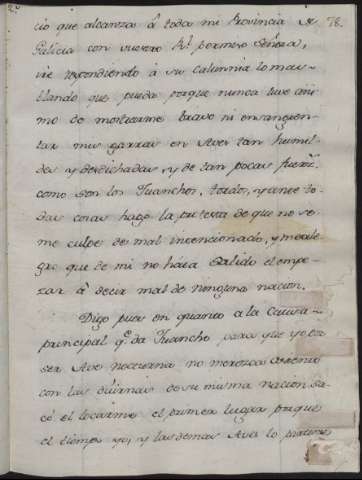 78.
cio que alcanza â toda mi Provincia de
Galicia con vuestro Rl. permiso Señora,
ire respondiendo â su calumnia lo mas
llano que pueda porque nunca tuve ani-
mo de mostrarme bravo ni ensangren-
tar mis garras en Aves tan humil-
des y desdichadas, y de tan pocas fuerzs.
como son los Juanchos, tordos, y ante to-
das cosas hago la protexta de que no se
me culpe de mal intencionado, y me ale-
gro que de mi no haia salido el empe-
zar â decir mal de ninguna nacion.
Digo pues en quanto a la Causa
principal qe. da Juancho para que yo por
ser Ave nocturna no merezca asiento
con las diurnas de su misma nacion de-
vo el tocarme el primer lugar porque
el tiempo yo, y las demas Aves lo